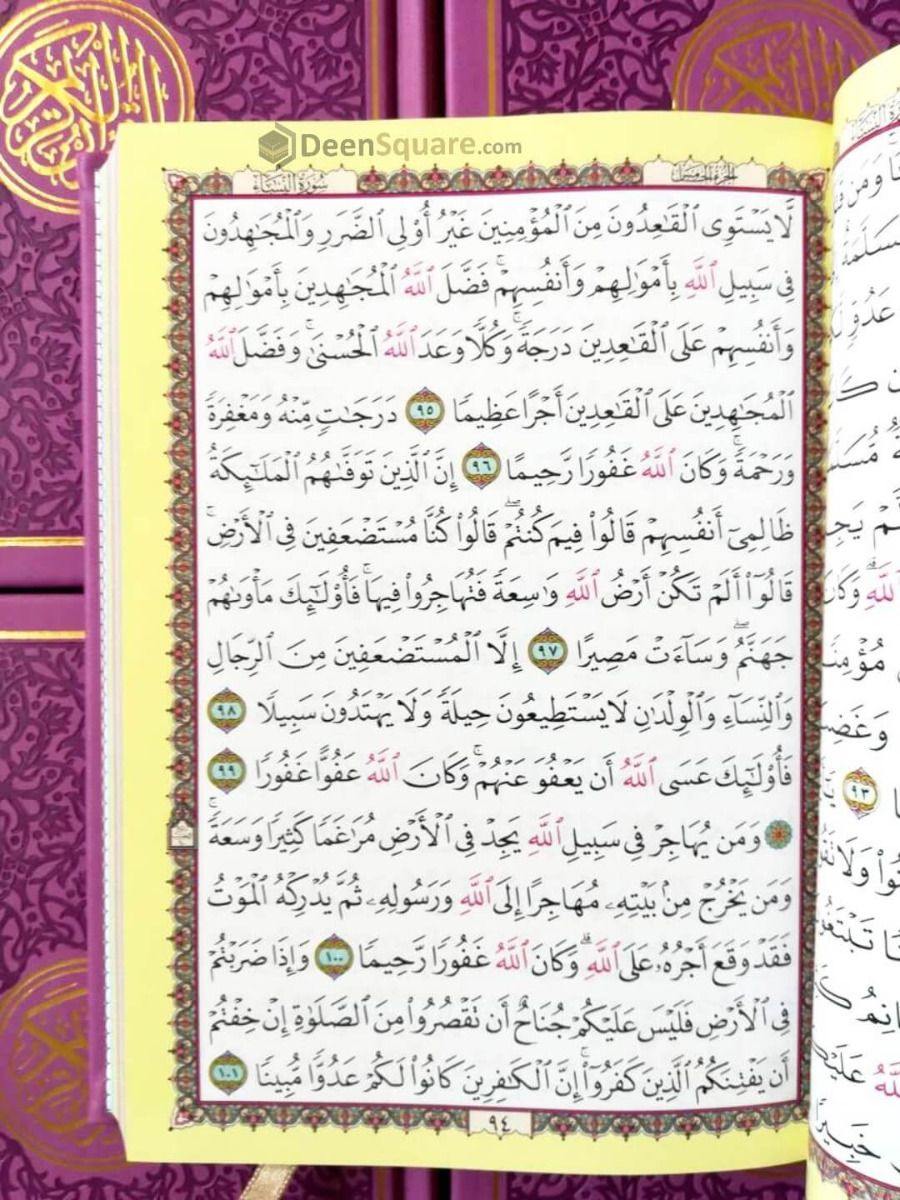 DeenSquare.com
سُورَةُ النِّسَاءِ
لَّا يَسْتَوِى ٱلْقَـٰعِدُونَ مِنَ ٱلْمُؤْمِنِينَ غَيْرُ أُو۟لِى ٱلضَّرَرِ وَٱلْمُجَـٰهِدُونَ
فِى سَبِيلِ ٱللَّهِ بِأَمْوَٰلِهِمْ وَأَنفُسِهِمْ ۚ فَضَّلَ ٱللَّهُ ٱلْمُجَـٰهِدِينَ بِأَمْوَٰلِهِمْ
وَأَنفُسِهِمْ عَلَى ٱلْقَـٰعِدِينَ دَرَجَةً ۚ وَكُلًّا وَعَدَ ٱللَّهُ ٱلْحُسْنَىٰ ۚ وَفَضَّلَ ٱللَّهُ
ٱلْمُجَـٰهِدِينَ عَلَى ٱلْقَـٰعِدِينَ أَجْرًا عَظِيمًا ٩٥ دَرَجَـٰتٍ مِّنْهُ وَمَغْفِرَةً
وَرَحْمَةً ۚ وَكَانَ ٱللَّهُ غَفُورًا رَّحِيمًا ٩٦ إِنَّ ٱلَّذِينَ تَوَفَّىٰهُمُ ٱلْمَلَـٰٓئِكَةُ
ظَالِمِىٓ أَنفُسِهِمْ قَالُوا۟ فِيمَ كُنتُمْ ۖ قَالُوا۟ كُنَّا مُسْتَضْعَفِينَ فِى ٱلْأَرْضِ ۚ
قَالُوٓا۟ أَلَمْ تَكُنْ أَرْضُ ٱللَّهِ وَٰسِعَةً فَتُهَاجِرُوا۟ فِيهَا ۚ فَأُو۟لَـٰٓئِكَ مَأْوَىٰهُمْ
جَهَنَّمُ ۖ وَسَآءَتْ مَصِيرًا ٩٧ إِلَّا ٱلْمُسْتَضْعَفِينَ مِنَ ٱلرِّجَالِ
وَٱلنِّسَآءِ وَٱلْوِلْدَٰنِ لَا يَسْتَطِيعُونَ حِيلَةً وَلَا يَهْتَدُونَ سَبِيلًا ٩٨
فَأُو۟لَـٰٓئِكَ عَسَى ٱللَّهُ أَن يَعْفُوَ عَنْهُمْ ۚ وَكَانَ ٱللَّهُ عَفُوًّا غَفُورًا ٩٩
۞ وَمَن يُهَاجِرْ فِى سَبِيلِ ٱللَّهِ يَجِدْ فِى ٱلْأَرْضِ مُرَٰغَمًا كَثِيرًا وَسَعَةً ۚ
وَمَن يَخْرُجْ مِنۢ بَيْتِهِۦ مُهَاجِرًا إِلَى ٱللَّهِ وَرَسُولِهِۦ ثُمَّ يُدْرِكْهُ ٱلْمَوْتُ
فَقَدْ وَقَعَ أَجْرُهُۥ عَلَى ٱللَّهِ ۗ وَكَانَ ٱللَّهُ غَفُورًا رَّحِيمًا ١٠٠ وَإِذَا ضَرَبْتُمْ
فِى ٱلْأَرْضِ فَلَيْسَ عَلَيْكُمْ جُنَاحٌ أَن تَقْصُرُوا۟ مِنَ ٱلصَّلَوٰةِ إِنْ خِفْتُمْ
أَن يَفْتِنَكُمُ ٱلَّذِينَ كَفَرُوٓا۟ ۚ إِنَّ ٱلْكَـٰفِرِينَ كَانُوا۟ لَكُمْ عَدُوًّا مُّبِينًا ١٠١
٩٤